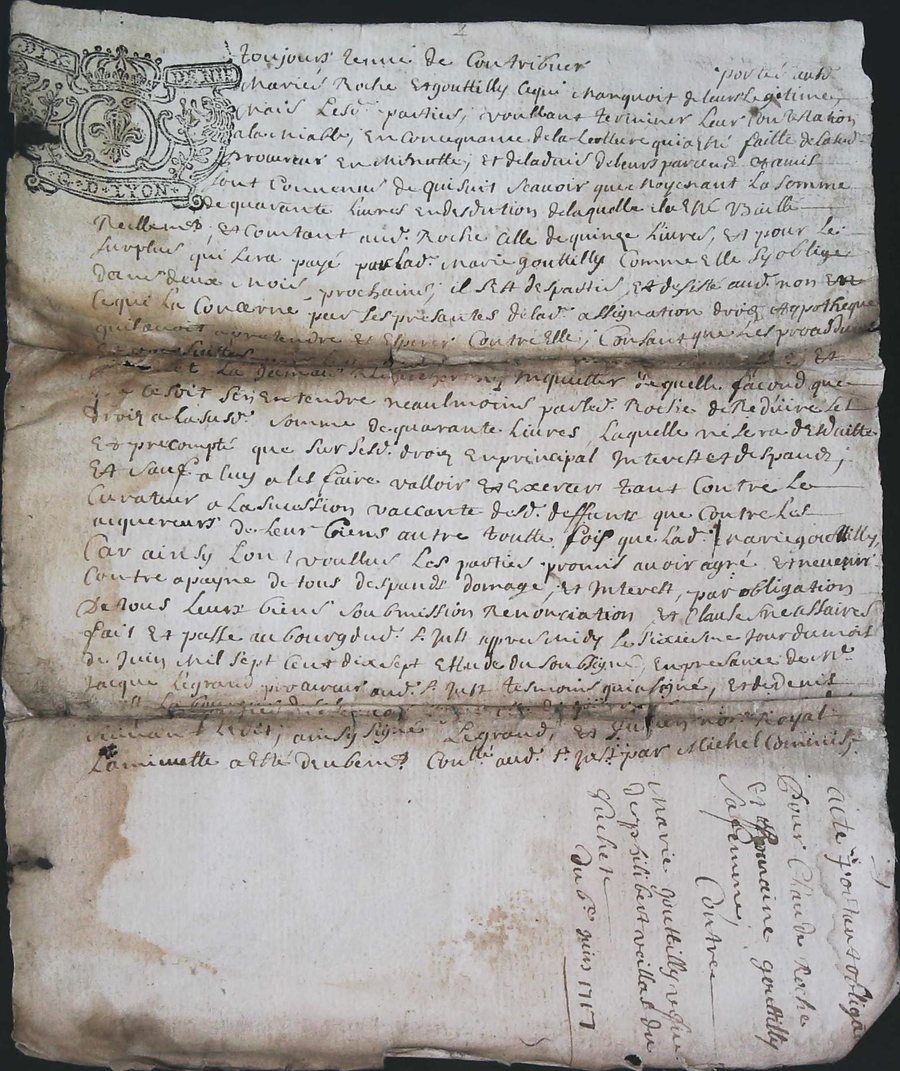 2
DIX DENIE
G. D. LYON
toujours tenue de Contribuer portée aud.
Mariés Roche Et gouttilly Cequi Manquoit de leurs Legitime,
Mais Lesd. parties, voullant terminer Leur Contestation
alamiable, En de la Lecture qui a Eté faitte de la sud.
procureur En Minutte, Et deladvis de leurs parans Et amis
sont Convenus de qui suit scauoir que Moyenant La somme
de quarante Livres En deduction de laquelle il a Eté Baillé
Reellemt, Et Contant aud. Roche Celle de quinze Livres, Et pour Le
surplus qui sera payé par lad. Marie gouttilly Comme Elle sy oblige
dans deux Mois prochains, il sest departis, Et desiste aud. nom En
Cequi La Concerne par Les presantes de lad. assignation droit Et ypotheque
quil auoit a pretendre Et Esperer Contre Elle, Consant que Les procedures
Et
La Jamais Rechercher ny Inquietter de quelle facond que
Ce soit sans Entendre neaulmoins par led. Roche de Reduire set
droiz a la susd. somme de quarante Livres, Laquelle ne sera
Et precompté que sur sesd. droiz En principal Interest et despandz,
Et sauf a luy a les faire valloir Et Exercer tant Contre Le
Curateur a La sucession vaccante desd. deffunts que Contre Les
acquereurs de Leur Biens autre toutte fois que Lad. Marie gouttilly,
Car ainsy Lont voullus Les parties promis auoir agré Et ne venir
Contre a payne de tous despands domage, Et Interest, par obligation
De tous Leurs biens soubmission Renonciation, Et Clause Necessaires
fait Et passé au bourg dud. St Just appres midy Le sixiesme Jour du mois
de Juin Mil sept Cent dix sept Etude du soubsigné, En presance de Me
Jacque Legrand procureur aud. St Just tesmoins qui a signé, Et de denis
ainsy signé Legrand, Et Royal
La minutte a Eté deubemt Contlé aud. St Just par Michel Commis.
acte portant obliga
pour Claude Roche
Et gouttilly
sa femme,
Contre
Marie gouttilly vefve
de philibert vaillat du
Du 6e Juin 1717